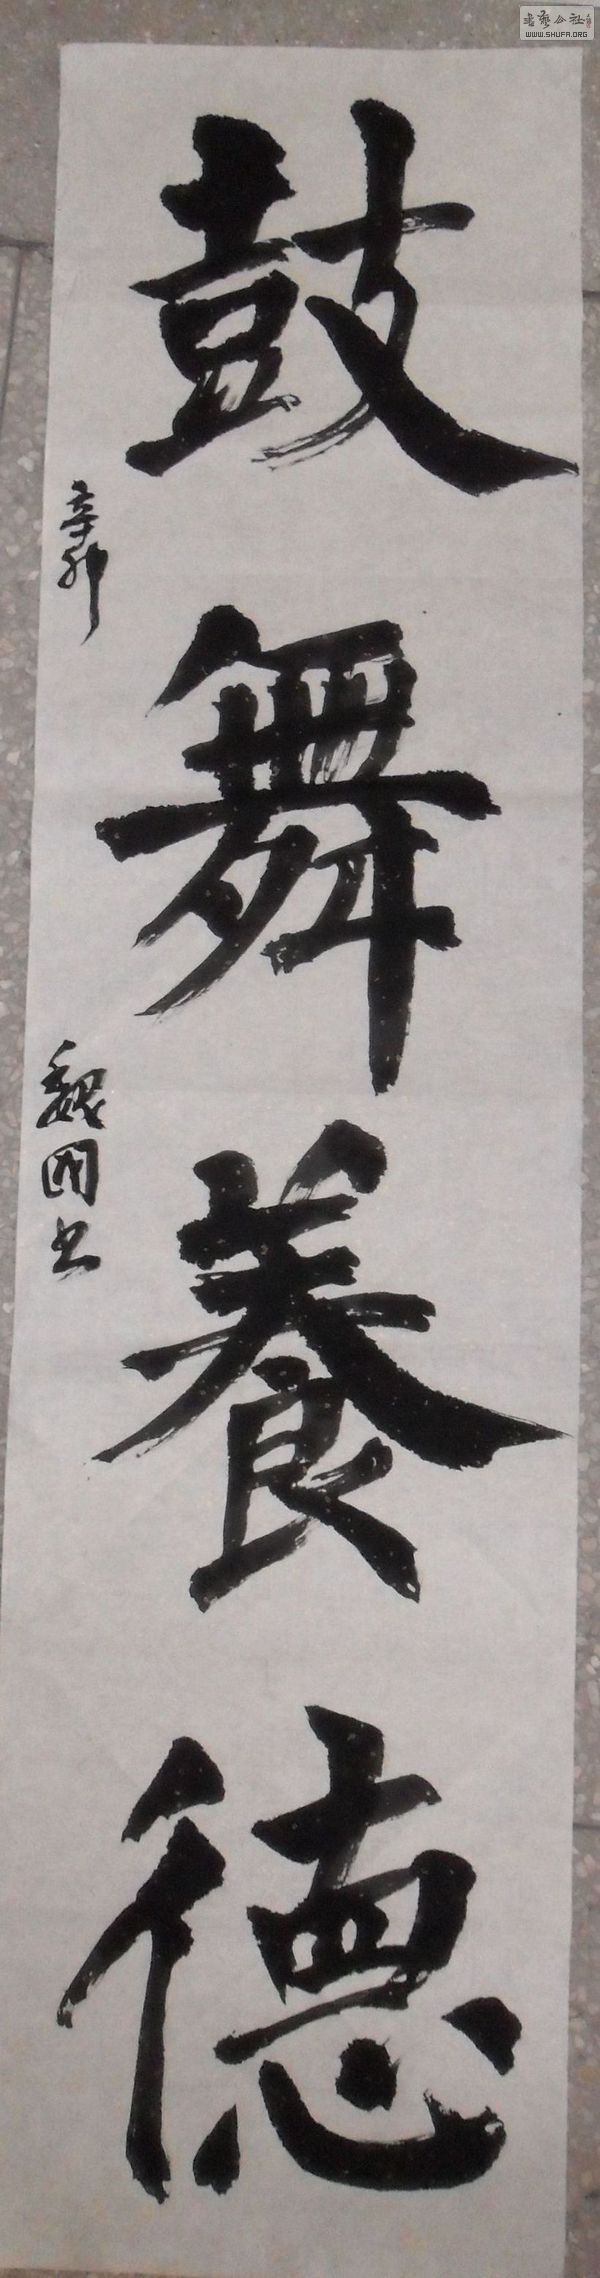 鼓舞養德
辛卯
魏国书
书艺公社
WWW.SHUFA.ORG